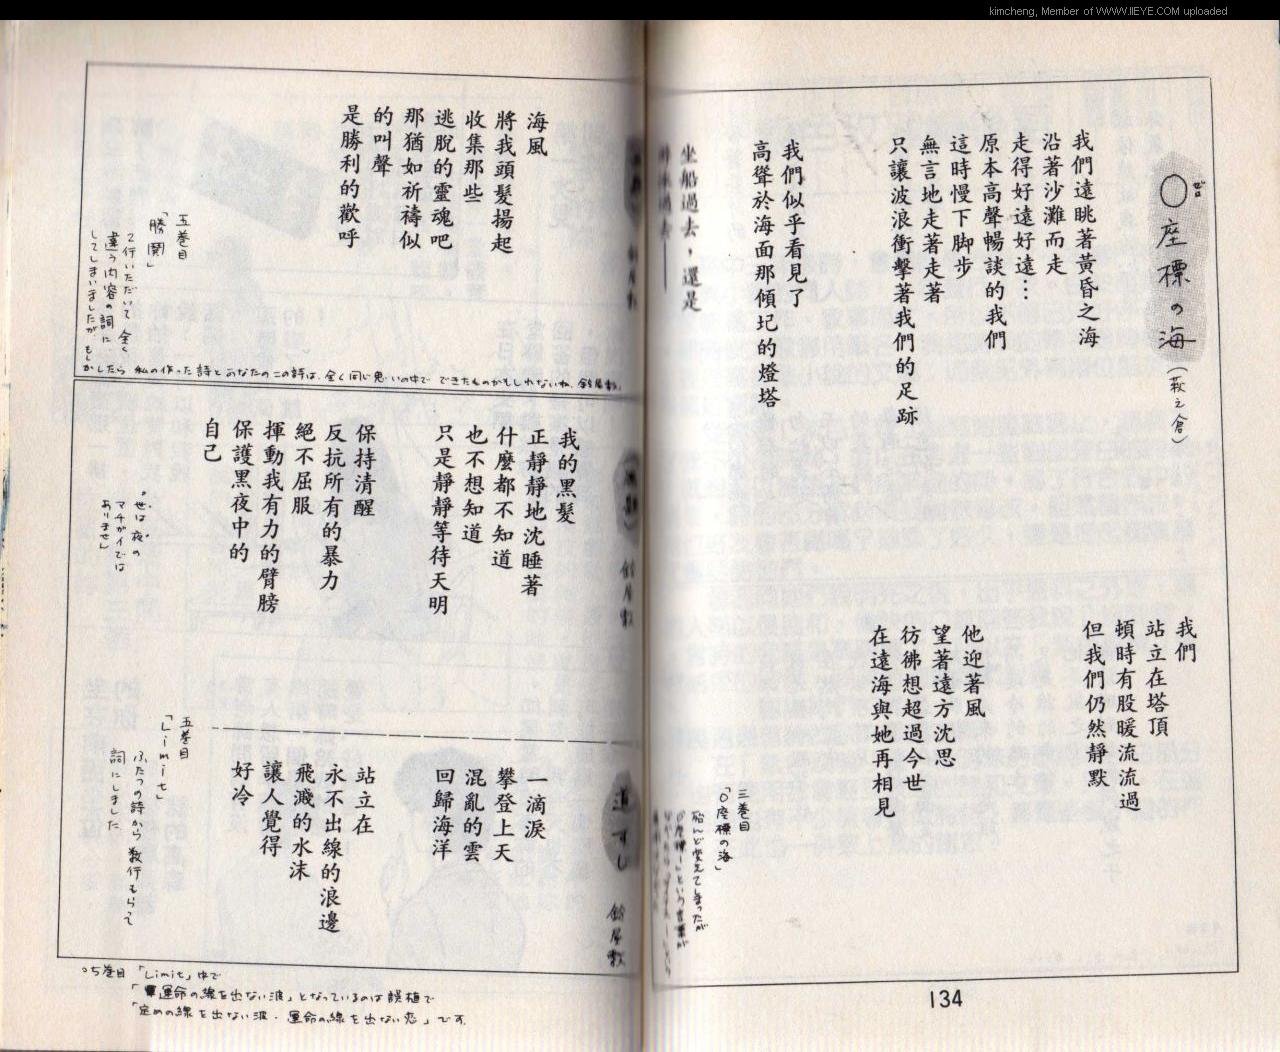 kimcheng, Member of WWW.IIEYE.COM uploaded
〇座標の海(萩之倉)
ゼロ
我們遠眺著黃昏之海
沿著沙灘而走
走得好遠好遠…
原本高聲暢談的我們
這時慢下脚步
無言地走著走著
只讓波浪衝擊著我們的足跡
我們似乎看見了
高聳於海面那傾圮的燈塔
坐船過去,還是
我們
站立在塔頂
頓時有股暖流流過
但我們仍然靜默
他迎著風
望著遠方沈思
彷彿想超過今世
在遠海與她再相見
三巻目
「〇座標の海」
殆んど変えてしまったが
134
海風
將我頭髮揚起
收集那些
逃脫的靈魂吧
那猶如祈禱似
的叫聲
是勝利的歡呼
五巻目
「勝鬨」
2行いただいて全く
違う内容の詞に
してしまいましたが、もし
かしたら 私の作った詩とあなたのこの詩は、全く同じ思いの中で できたものかもしれないね、鈴屋敷。
鈴屋敷
我的黑髮
正靜靜地沈睡著
什麼都不知道
也不想知道
只是靜靜等待天明
保持清醒
反抗所有的暴力
絕不屈服
揮動我有力的臂膀
保護黑夜中的
自己
"世は"夜の
マチガイでは
ありません
道すじ 鈴屋敷
一滴淚
攀登上天
混亂的雲
回歸海洋
站立在
永不出線的浪邊
飛濺的水沫
讓人覺得
好冷
五巻目
「Limit」
ふたつの詩から数行もらって
詞にしました
○5巻目 「Limit」中で
「運命の線を出ない波」となっているのは誤植で
「定めの線を出ない波・運命の線を出ない恋」です。